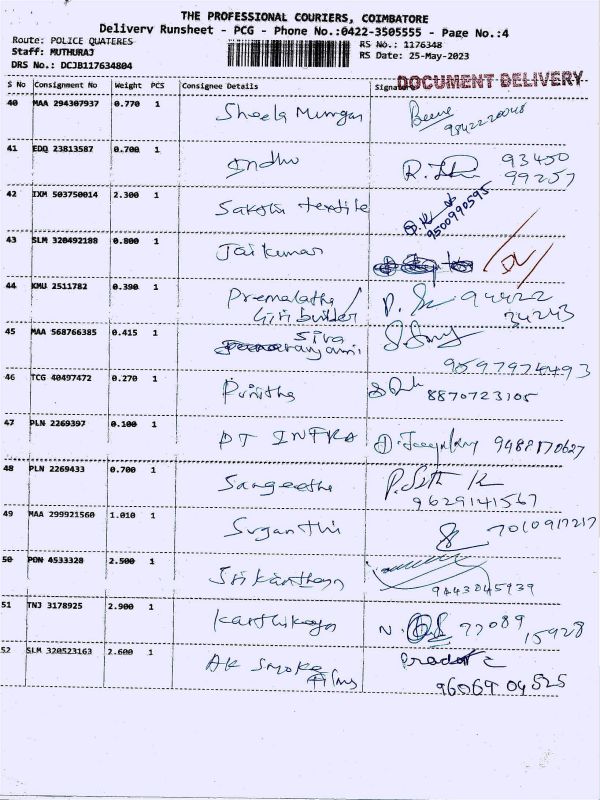 THE PROFESSIONAL COURIERS, COIMBATORE
Delivery Runsheet - PCG - Phone No.:0422-3505555 - Page No.:4
Route: POLICE QUATERES
RS No.: 1176348
Staff: MUTHURAJ
RS Date: 25-May-2023
DRS No.: DCJB117634804
DOCUMENT DELIVERY
S No Consignment No Weight PCS Consignee Details
40 MAA 294307937 0.770 1 Sheela Murugan
9842220048
41 EDQ 23813587 0.700 1 Indhu 93450
99257
42 IXM 503750014 2.300 1 Sakthi textile 9500990595
43 SLM 320492188 0.800 1 Jai kumar
44 KMU 2511782 0.390 1 Premalatha / 94422
Giri builder 34243
45 MAA 568766385 0.415 1 Siva
9597974493
46 TCG 40497472 0.270 1 Punitha 8870723105
47 PLN 2269397 0.100 1 PT INFRA 9488170627
48 PLN 2269433 0.700 1 Sangeetha
9629141567
49 MAA 299921560 1.010 1 Suganthi 7010917217
50 PON 4533328 2.500 1 Srikanthan
9443045939
51 TNJ 3178925 2.900 1 Karthikeya 77089 15928
52 SLM 320523163 2.600 1 AK Smoke
Films 96069 04525